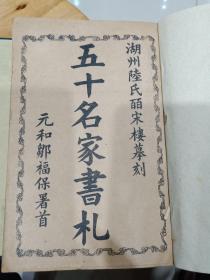 湖州陸氏皕宋樓摹刻
五十名家書札
元和鄒福保署首